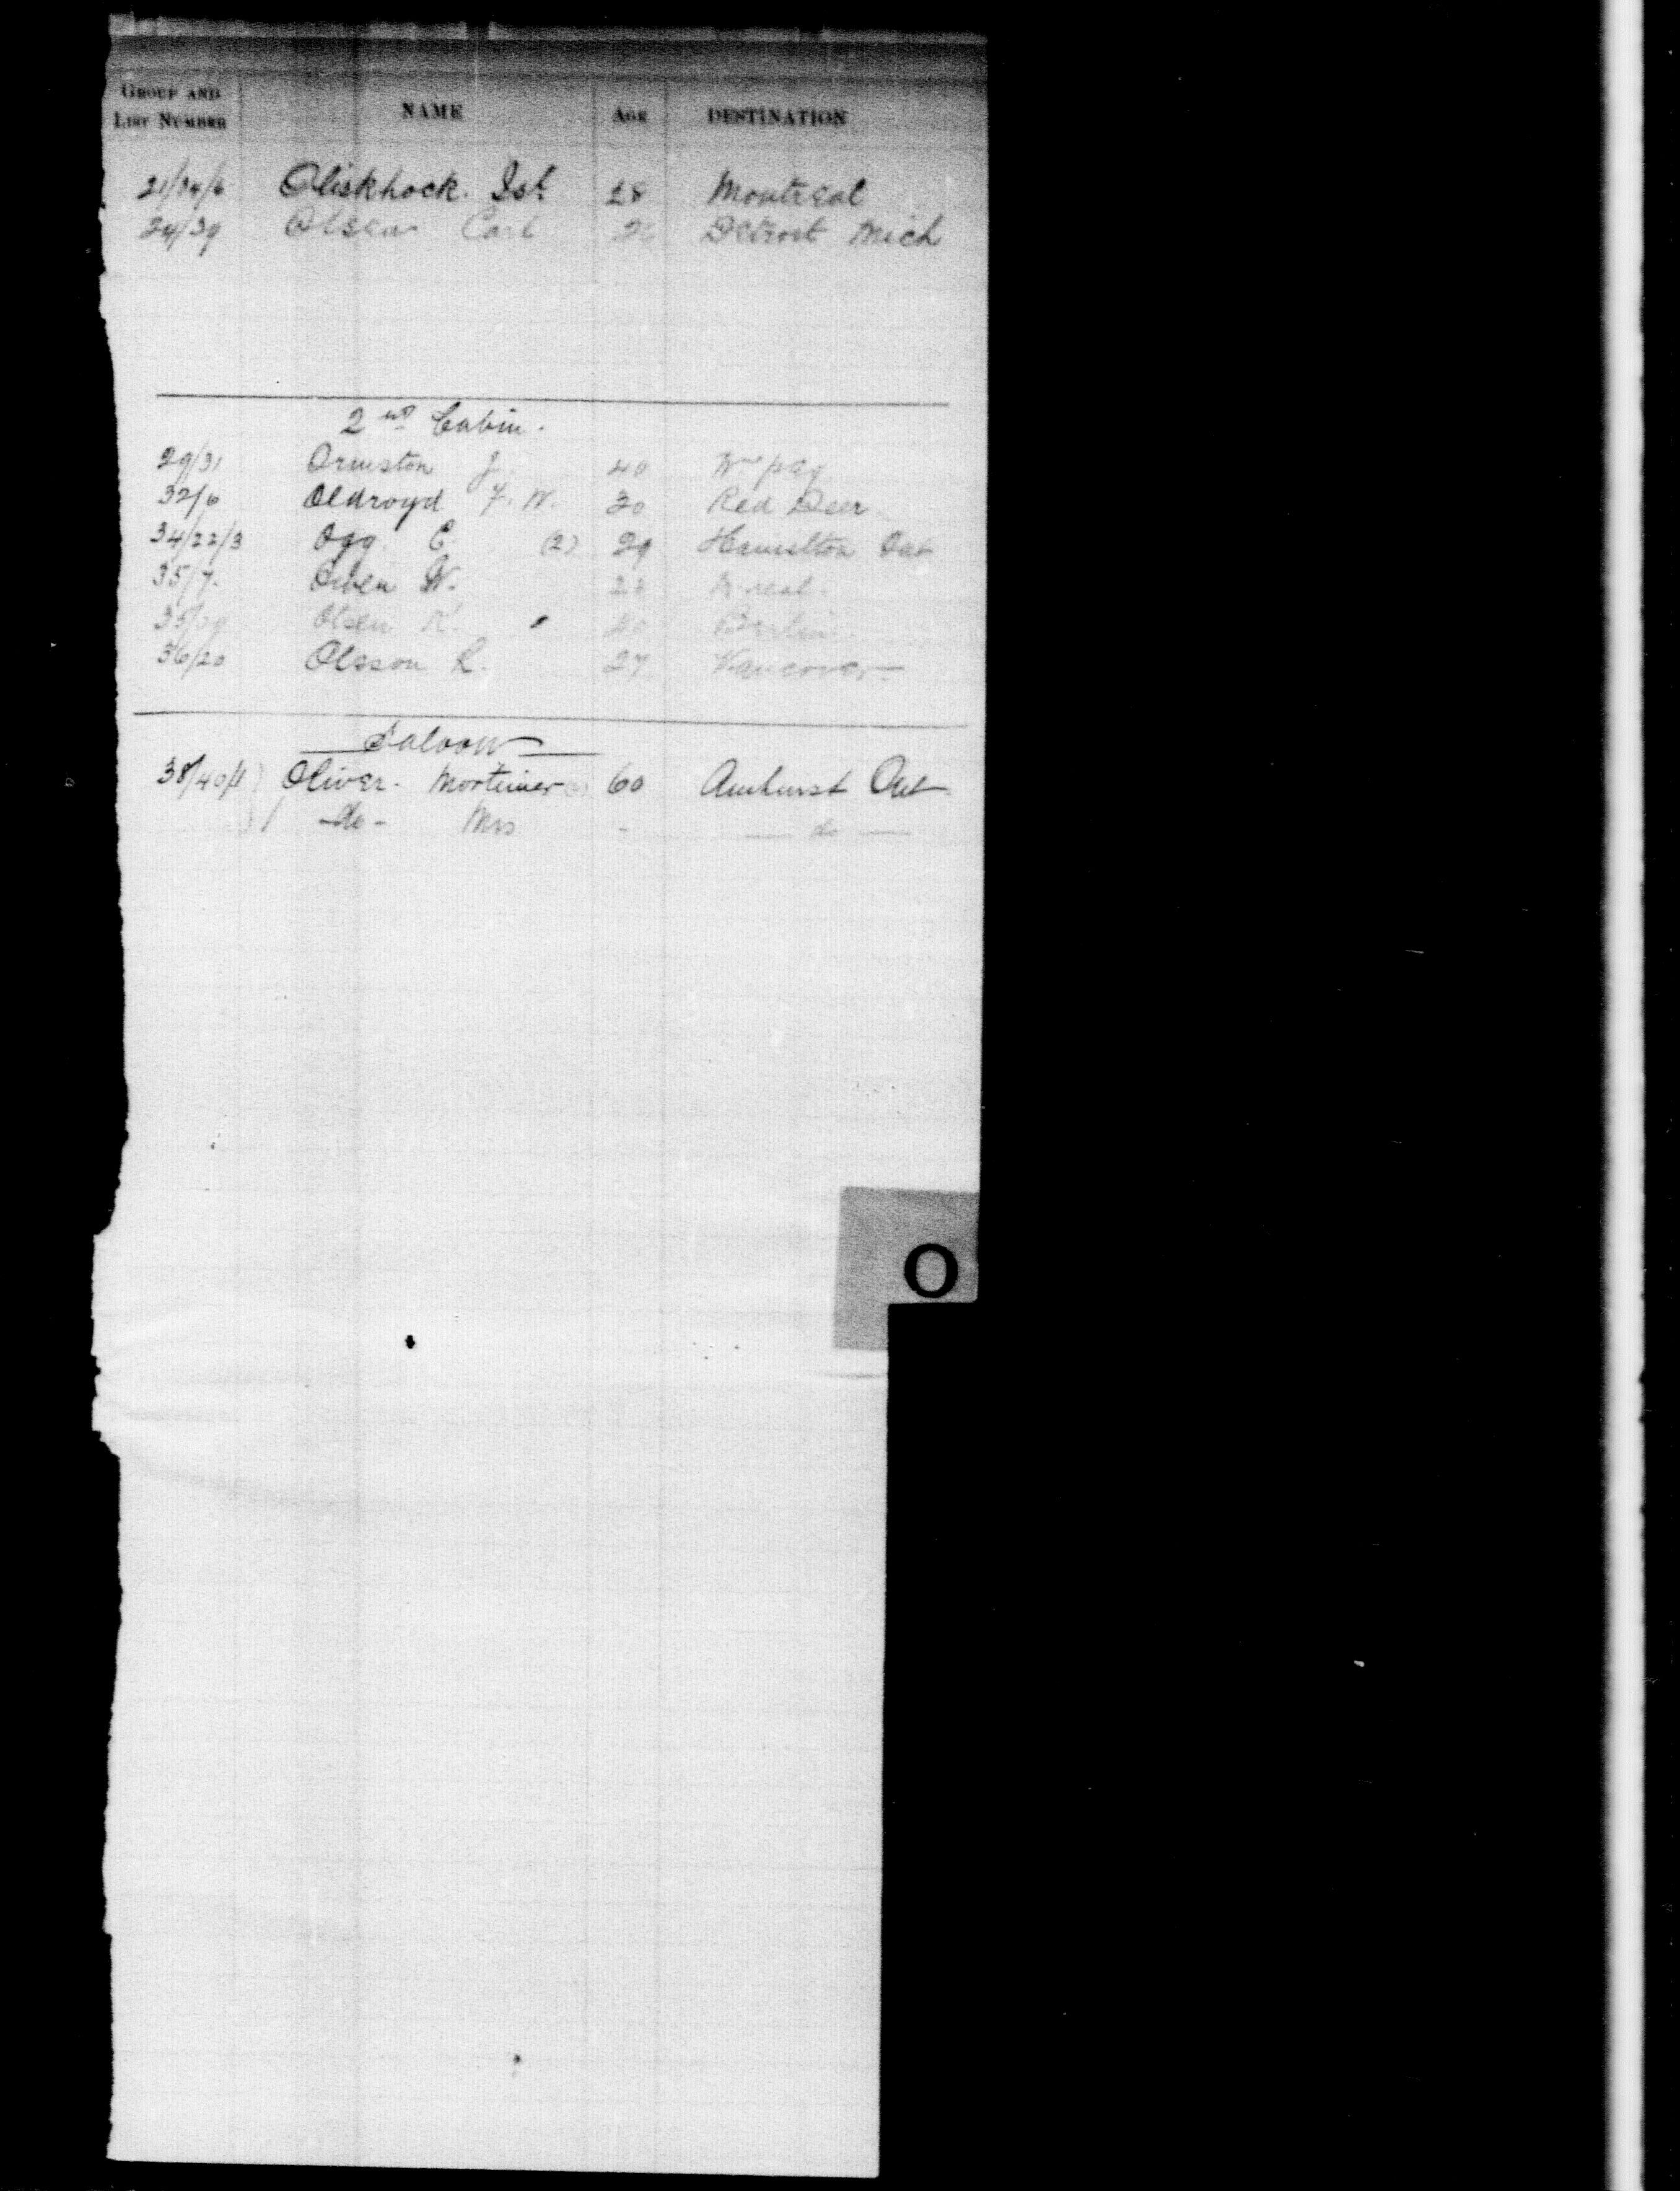 GROUP AND LIST NUMBER NAME AGE DESTINATION
21/34/6 Oliskhock. Ist 28 Montreal
24/39 Olsen Carl Detroit Mich
2nd Cabin.
29/31 Ormston J. 40 Wpag
32/6 Oldroyd F. W. 30 Red Deer
34/22/3 Ogg E. (2) 29 Hamilton Ont
35/7. Owen W. M-real.
Olsen K. 40 Berlin
36/20 Olsson R. 27 Vancover
Saloon
38/40/1 Oliver. Mortimer 60 Amhurst Ont
-do- Mrs - — do —
O